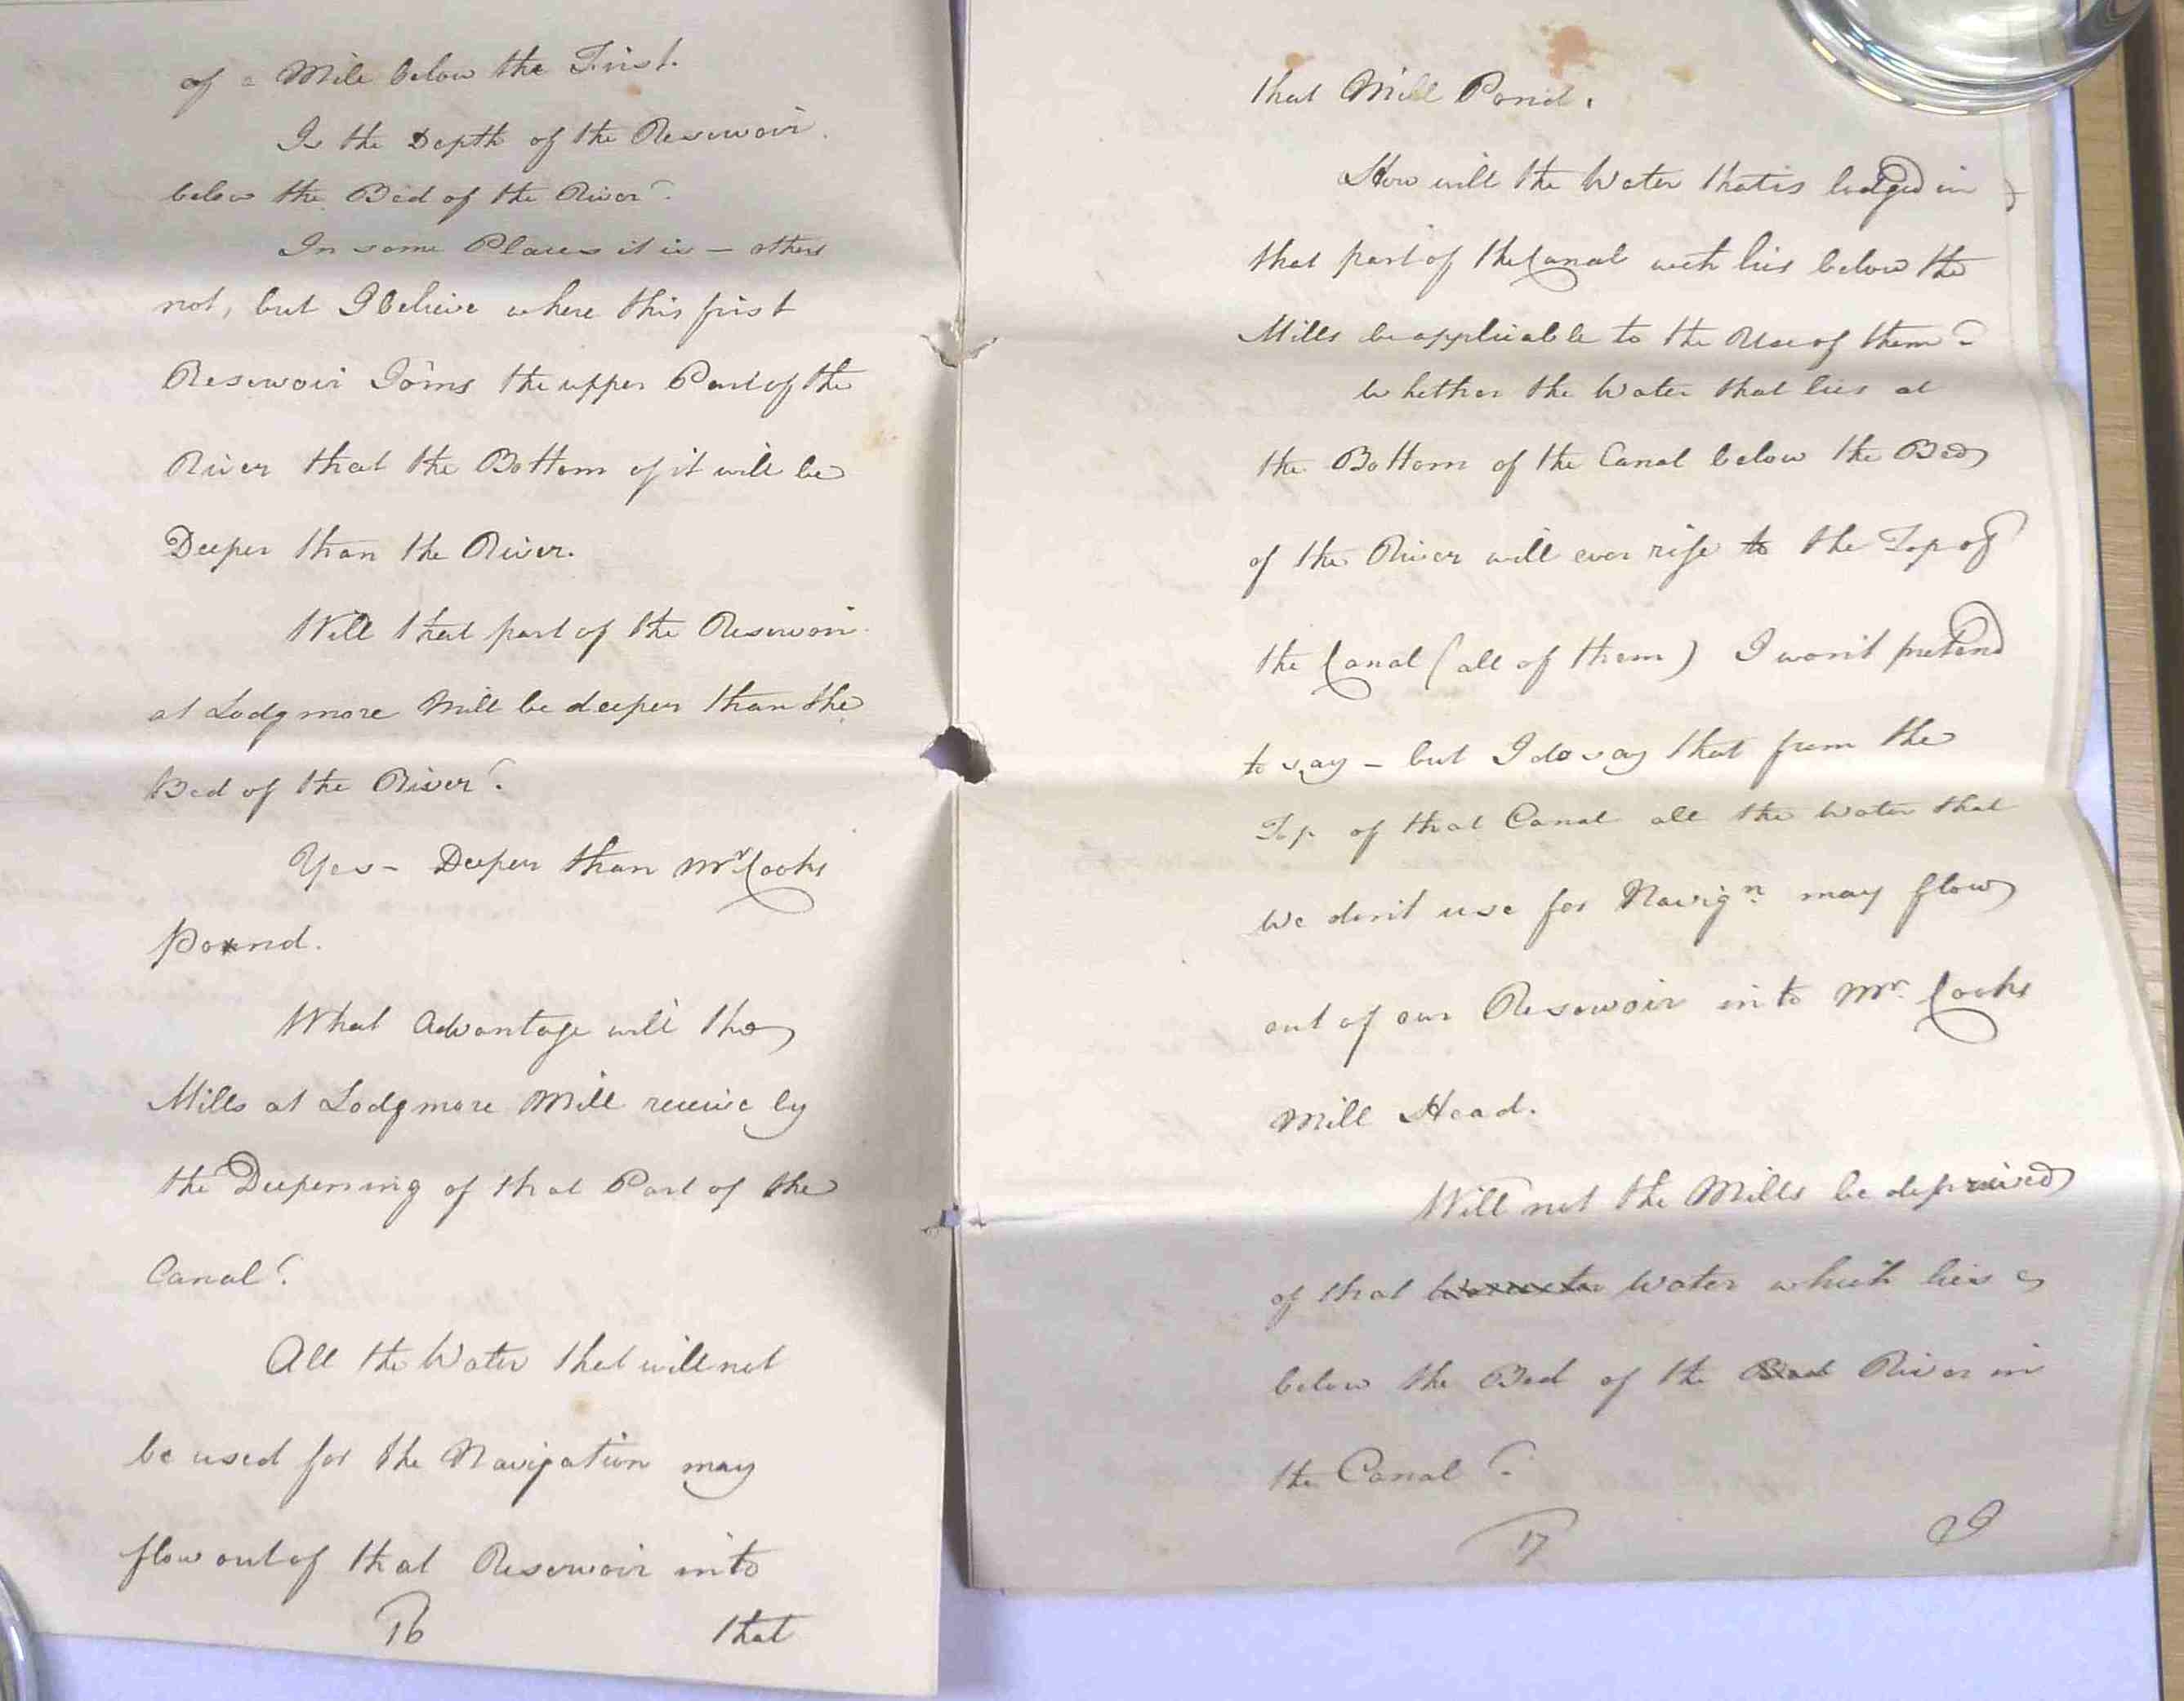 of a Mile below the First.
Is the Depth of the Reservoir
below the Bed of the River?
In some Places it is – others
not, but I believe where this first
Reservoir Joins the upper Part of the
River that the Bottom of it will be
Deeper than the River.
Will that part of the Reservoir
at Lodgmore Mill be deeper than the
Bed of the River?
Yes – Deeper than Mr Cooks
Pond.
What Advantage will the
Mills at Lodgmore Mill receive by
the Deepening of that Part of the
Canal?
All the Water that will not
be used for the Navigation may
flow out of that Reservoir into
16 that
that Mill Pond.
How will the Water that is lodged in
that part of the Canal wch lies below the
Mills be applicable to the Use of them?
Whether the Water that lies at
the Bottom of the Canal below the Bed
of the River will ever rise to the Top of
the Canal (all of them) I won't pretend
to say – but I do say that from the
Top of that Canal all the Water that
We don't use for Navign. may flow
out of our Reservoir into Mr. Cooks
Mill Head.
Will not the Mills be deprived
of that Water which lies
below the Bed of the Bed River in
the Canal?
17 I